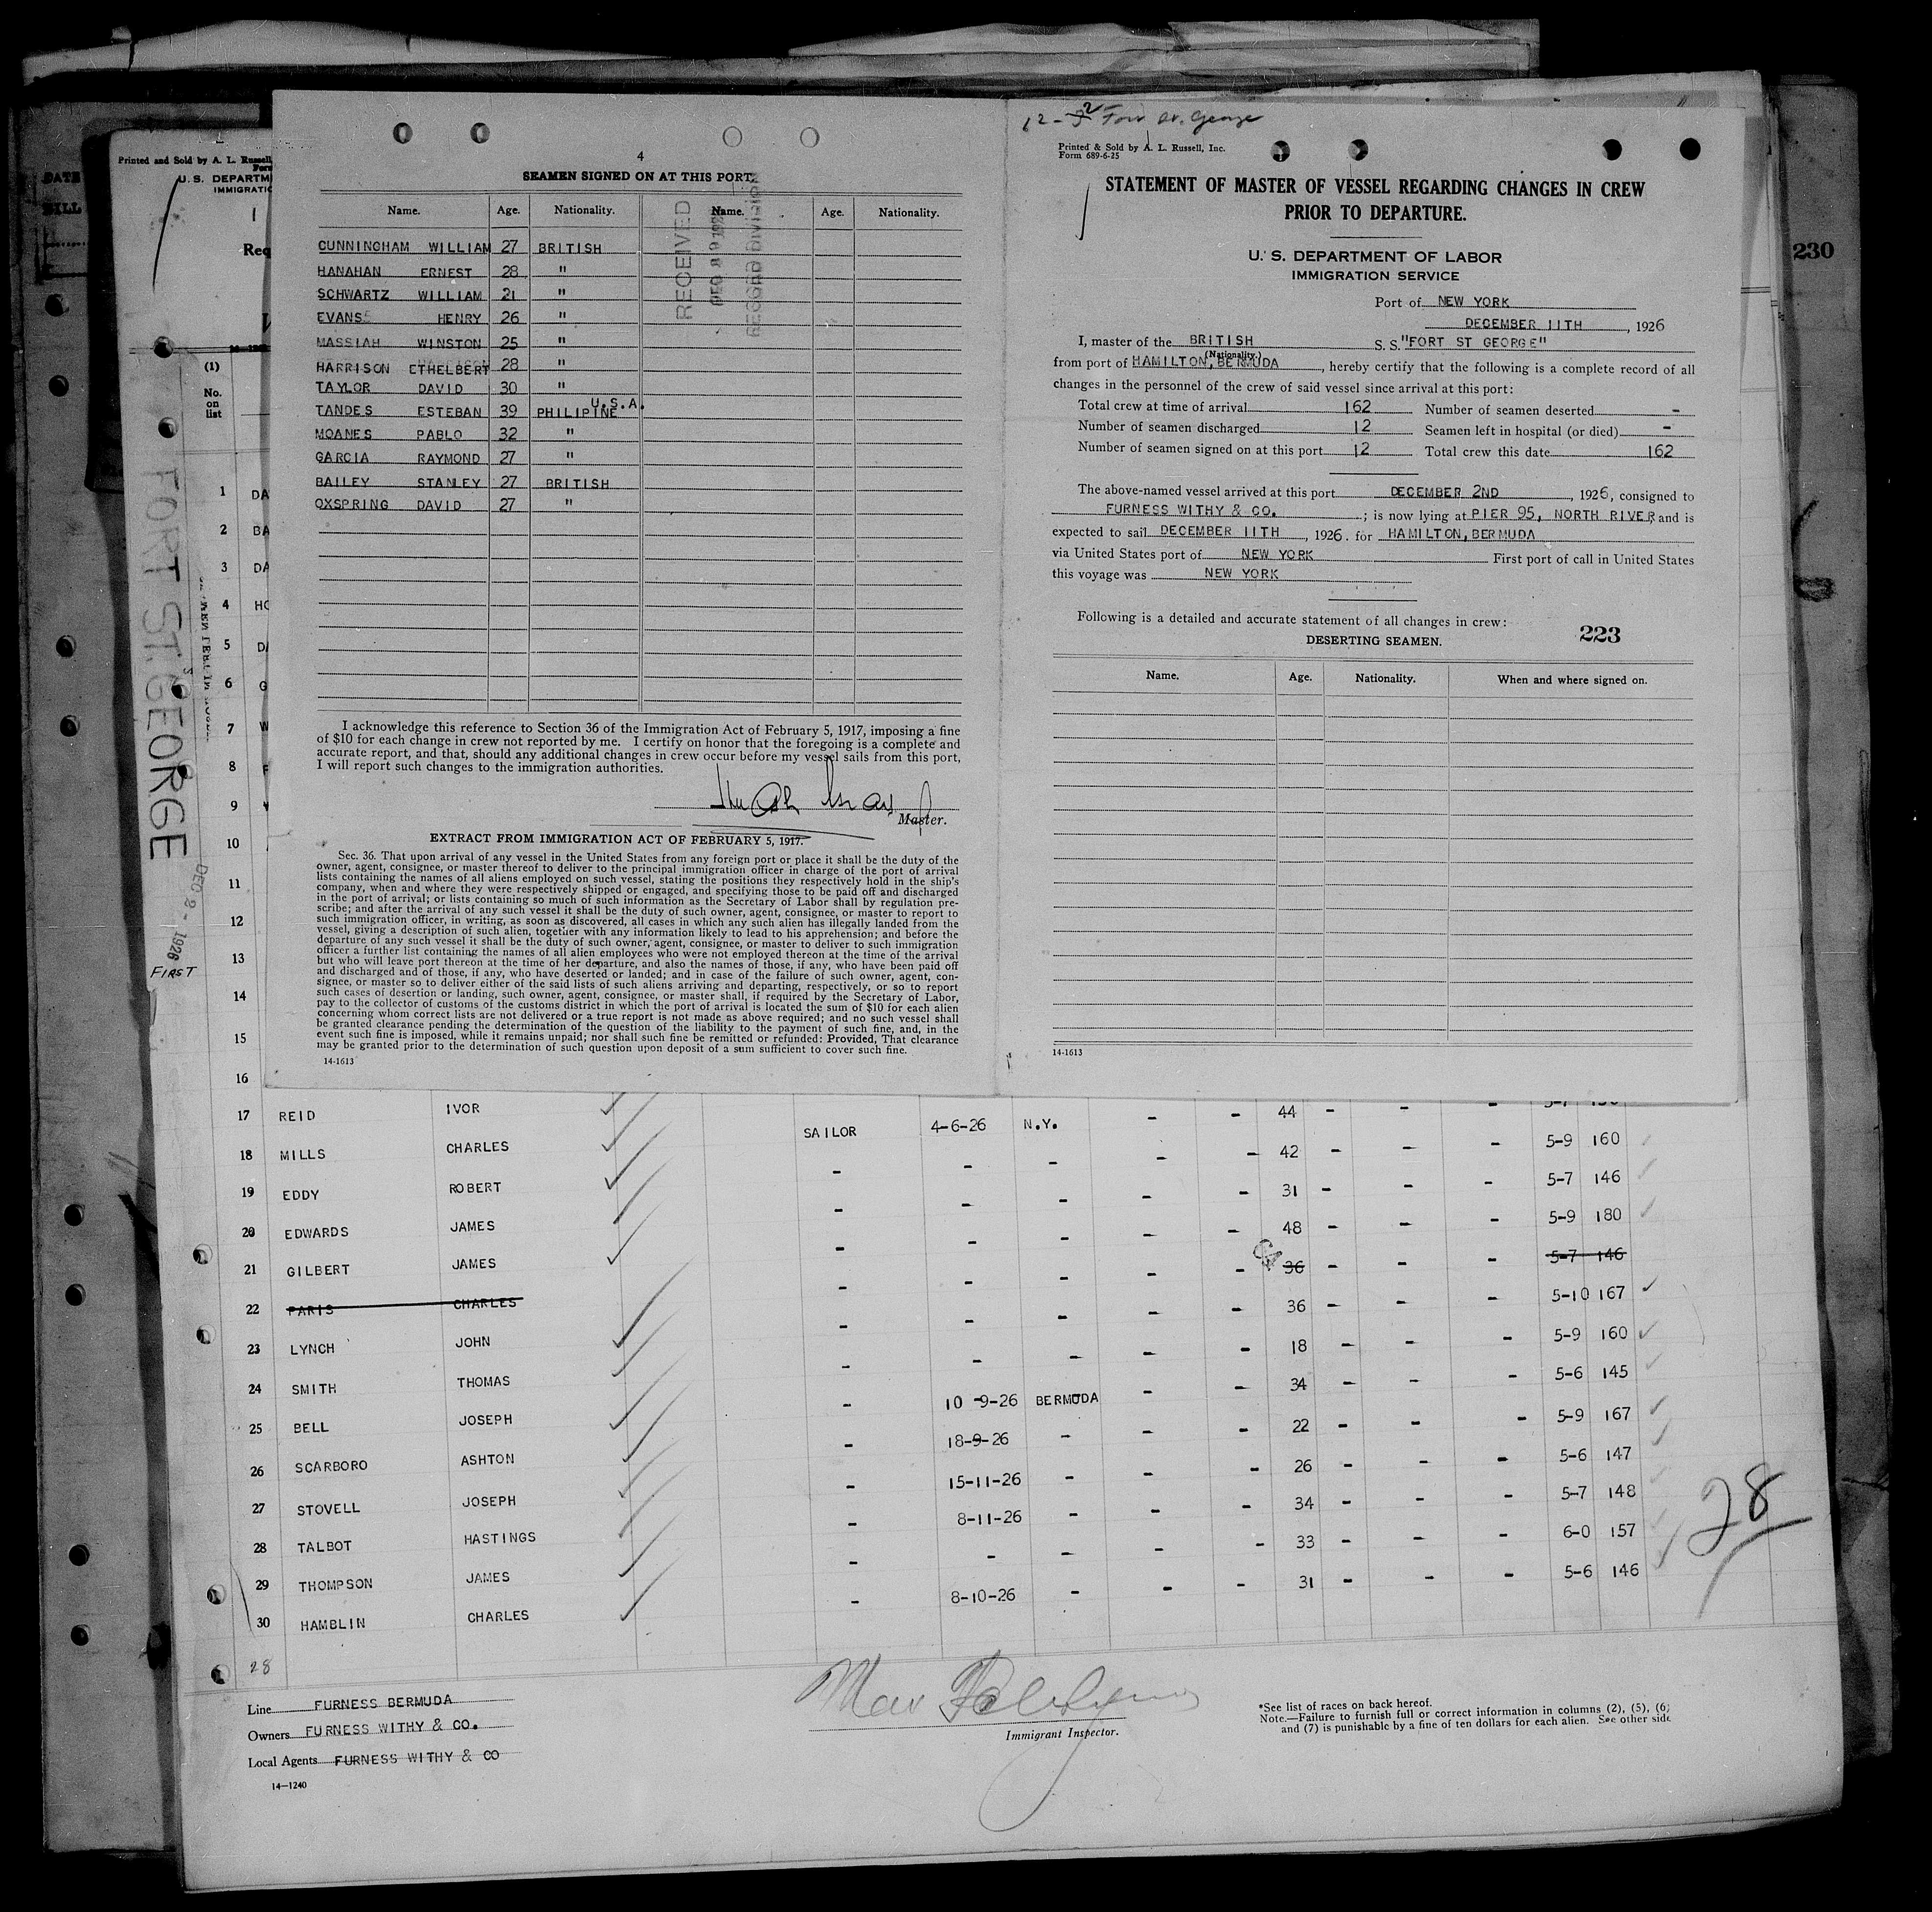 DATE
BILL
230
Printed and Sold by A. L. Russell
U. S. DEPARTM
IMMIGRATIC
1
Req
(1)
No.
on
list
FORT ST. GEORGE
DEC 2 - 1926
FIRST
1 DA
2 BA
3 DA
4 HO
5 DA
6 G
7 W
8 F
9
10
11
12
13
14
15
16
4
SEAMEN SIGNED ON AT THIS PORT.
Name. Age. Nationality. Name. Age. Nationality.
RECEIVED
RECORD DIVISION
CUNNINGHAM WILLIAM 27 BRITISH
HANAHAN ERNEST 28 "
SCHWARTZ WILLIAM 21 "
EVANS HENRY 26 "
MASSIAH WINSTON 25 "
HARRISON ETHELBERT 28 "
TAYLOR DAVID 30 "
U.S.A.
TANDES ESTEBAN 39 PHILIPINE
MOANES PABLO 32 "
GARCIA RAYMOND 27 "
BAILEY STANLEY 27 BRITISH
OXSPRING DAVID 27 "
I acknowledge this reference to Section 36 of the Immigration Act of February 5, 1917, imposing a fine
of $10 for each change in crew not reported by me. I certify on honor that the foregoing is a complete and
accurate report, and that, should any additional changes in crew occur before my vessel sails from this port,
I will report such changes to the immigration authorities.
Master.
EXTRACT FROM IMMIGRATION ACT OF FEBRUARY 5, 1917.
Sec. 36. That upon arrival of any vessel in the United States from any foreign port or place it shall be the duty of the
owner, agent, consignee, or master thereof to deliver to the principal immigration officer in charge of the port of arrival
lists containing the names of all aliens employed on such vessel, stating the positions they respectively hold in the ship's
company, when and where they were respectively shipped or engaged, and specifying those to be paid off and discharged
in the port of arrival; or lists containing so much of such information as the Secretary of Labor shall by regulation pre-
scribe; and after the arrival of any such vessel it shall be the duty of such owner, agent, consignee, or master to report to
such immigration officer, in writing, as soon as discovered, all cases in which any such alien has illegally landed from the
vessel, giving a description of such alien, together with any information likely to lead to his apprehension; and before the
departure of any such vessel it shall be the duty of such owner, agent, consignee, or master to deliver to such immigration
officer a further list containing the names of all alien employees who were not employed thereon at the time of the arrival
but who will leave port thereon at the time of her departure, and also the names of those, if any, who have been paid off
and discharged and of those, if any, who have deserted or landed; and in case of the failure of such owner, agent, con-
signee, or master so to deliver either of the said lists of such aliens arriving and departing, respectively, or so to report
such cases of desertion or landing, such owner, agent, consignee, or master shall, if required by the Secretary of Labor,
pay to the collector of customs of the customs district in which the port of arrival is located the sum of $10 for each alien
concerning whom correct lists are not delivered or a true report is not made as above required; and no such vessel shall
be granted clearance pending the determination of the question of the liability to the payment of such fine, and, in the
event such fine is imposed, while it remains unpaid; nor shall such fine be remitted or refunded: Provided, That clearance
may be granted prior to the determination of such question upon deposit of a sum sufficient to cover such fine.
14-1613
12-2 Fort St. George
Printed & Sold by A. L. Russell, Inc.
Form 689-6-25
STATEMENT OF MASTER OF VESSEL REGARDING CHANGES IN CREW
PRIOR TO DEPARTURE.
U. S. DEPARTMENT OF LABOR
IMMIGRATION SERVICE
Port of NEW YORK
DECEMBER 11TH, 1926
I, master of the BRITISH S. S. "FORT ST GEORGE"
(Nationality.)
from port of HAMILTON, BERMUDA, hereby certify that the following is a complete record of all
changes in the personnel of the crew of said vessel since arrival at this port:
Total crew at time of arrival 162 Number of seamen deserted -
Number of seamen discharged 12 Seamen left in hospital (or died) -
Number of seamen signed on at this port 12 Total crew this date 162
The above-named vessel arrived at this port DECEMBER 2ND, 1926, consigned to
FURNESS WITHY & CO.; is now lying at PIER 95, NORTH RIVER, and is
expected to sail DECEMBER 11TH, 1926. for HAMILTON, BERMUDA
via United States port of NEW YORK First port of call in United States
this voyage was NEW YORK
Following is a detailed and accurate statement of all changes in crew:
223
DESERTING SEAMEN.
Name. Age. Nationality. When and where signed on.
14-1613
17 REID IVOR SAILOR 4-6-26 N.Y. - - 44 - - -
18 MILLS CHARLES - - - - - 42 - - - 5-9 160
19 EDDY ROBERT - - - - - 31 - - - 5-7 146
20 EDWARDS JAMES - - - - - 48 - - - 5-9 180
21 GILBERT JAMES - - - - - 36 - - - 5-7 146
22 PARIS CHARLES - - - - - 36 - - - 5-10 167
23 LYNCH JOHN - - - - - 18 - - - 5-9 160
24 SMITH THOMAS - 10-9-26 BERMUDA - - 34 - - - 5-6 145
25 BELL JOSEPH - 18-9-26 - - - 22 - - - 5-9 167
26 SCARBORO ASHTON - 15-11-26 - - - 26 - - - 5-6 147
27 STOVELL JOSEPH - 8-11-26 - - - 34 - - - 5-7 148
28 TALBOT HASTINGS - - - - - 33 - - - 6-0 157
29 THOMPSON JAMES - 8-10-26 - - - 31 - - - 5-6 146
30 HAMBLIN CHARLES
28
28
Line FURNESS BERMUDA
Owners FURNESS WITHY & CO.
Local Agents FURNESS WITHY & CO
14-1240
Immigrant Inspector.
*See list of races on back hereof.
Note.—Failure to furnish full or correct information in columns (2), (5), (6)
and (7) is punishable by a fine of ten dollars for each alien. See other side